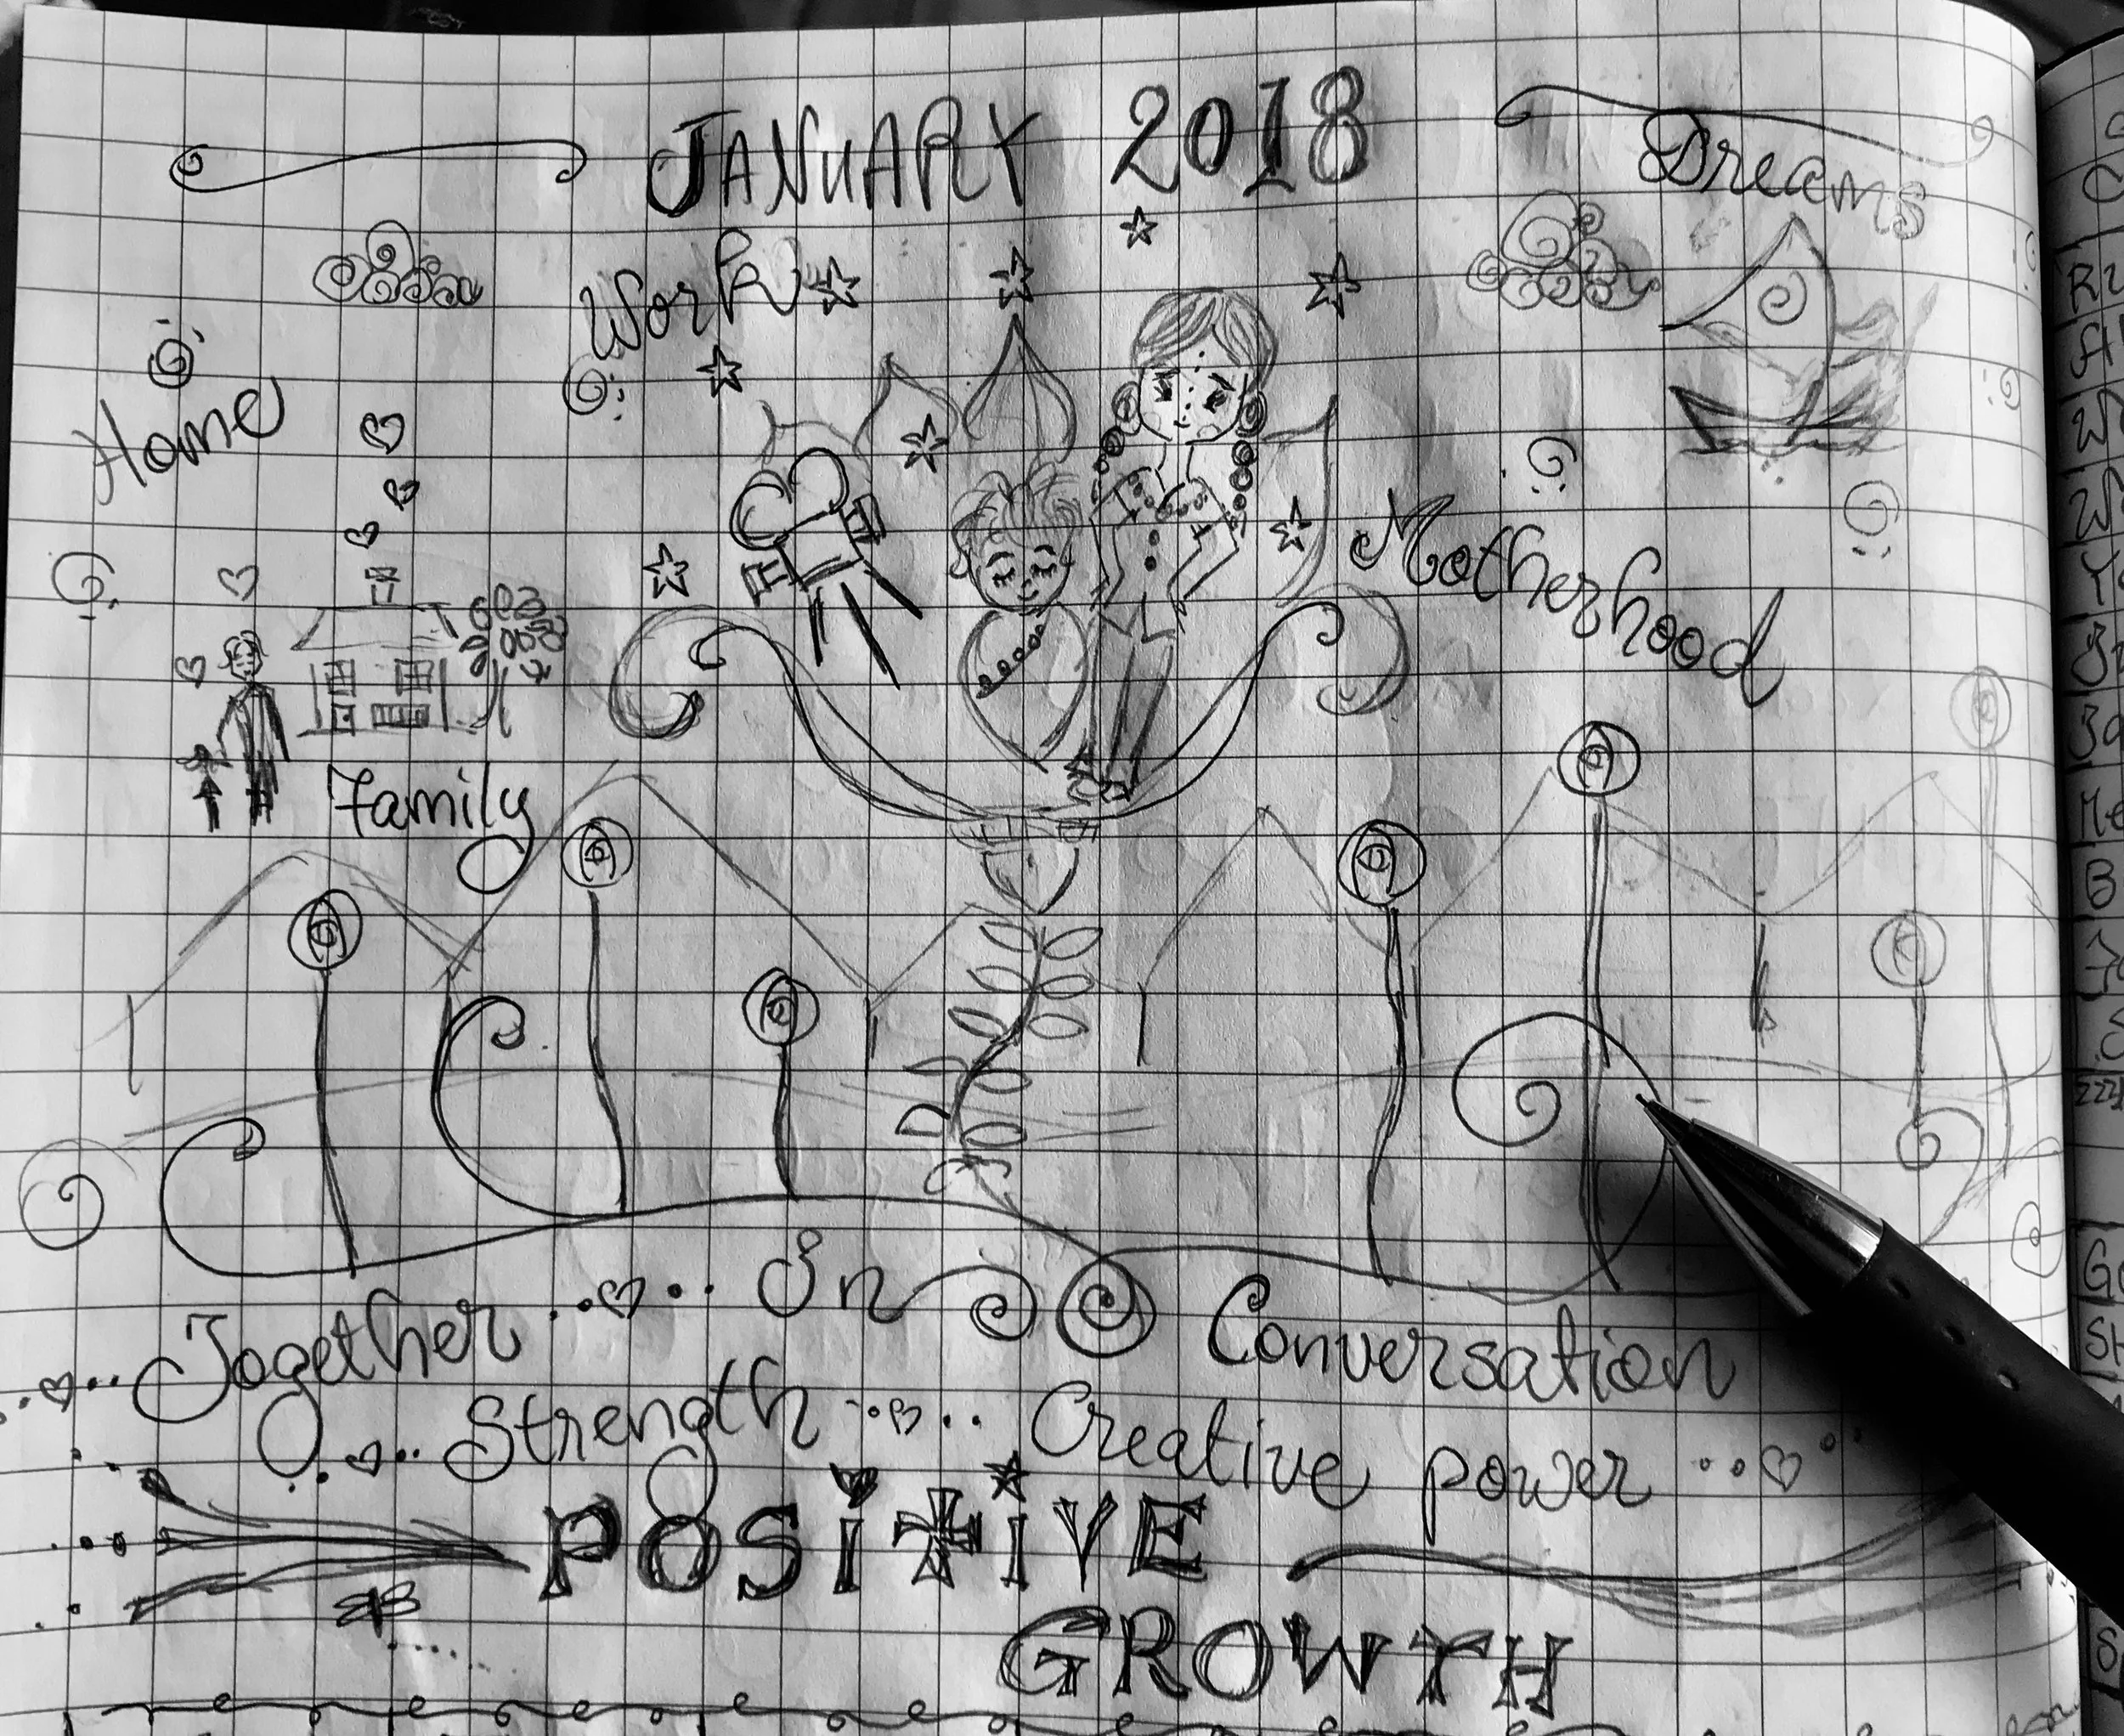 JANUARY 2018
Dreams
Work
Home
Motherhood
Family
Together In Conversation
Strength Creative power
POSITIVE
GROWTH